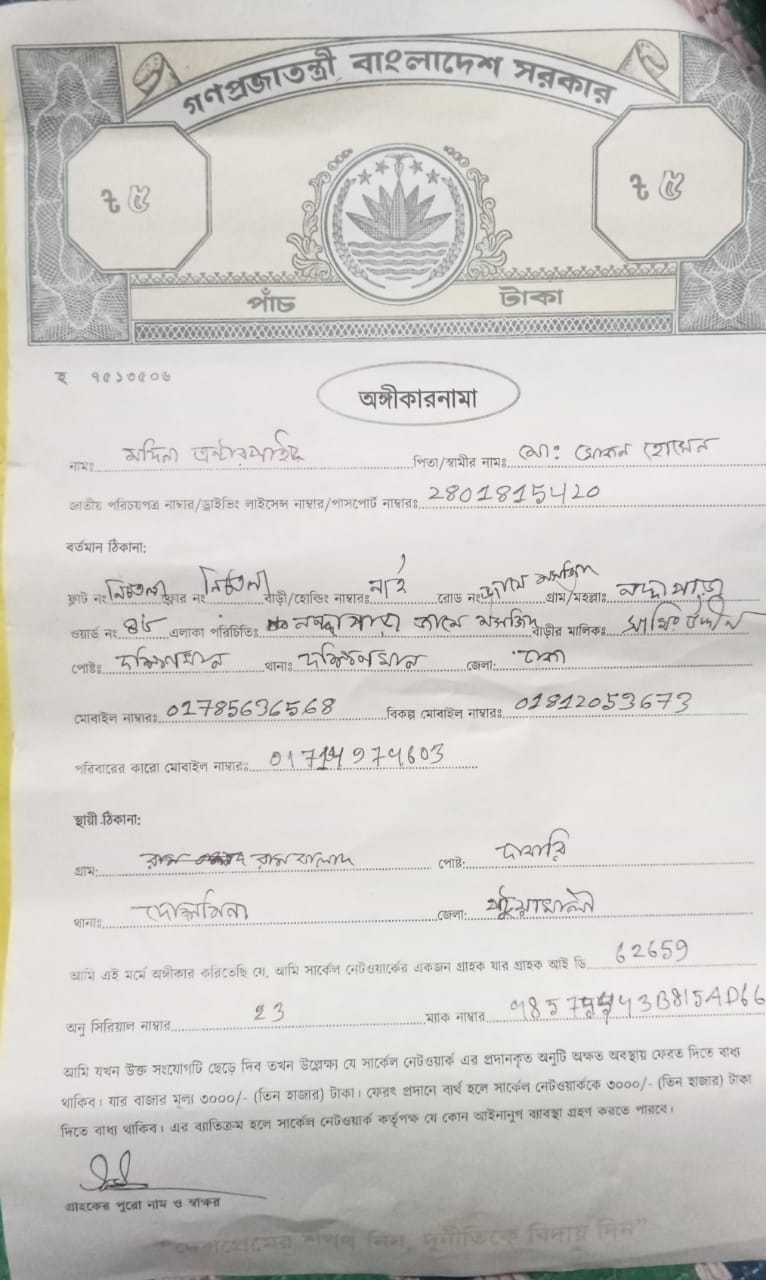 গণপ্রজাতন্ত্রী বাংলাদেশ সরকার
৳ ৫ ৳ ৫
পাঁচ টাকা
হ ৭৫১৩৫০৬
অঙ্গীকারনামা
নামঃ মদিনা এন্টারপ্রাইজ পিতা/স্বামীর নামঃ মোঃ হোসেন
জাতীয় পরিচয়পত্র নাম্বার/ড্রাইভিং লাইসেন্স নাম্বার/পাসপোর্ট নাম্বারঃ 2801815420
বর্তমান ঠিকানা:
ফ্লাট নং নিচতলা ফ্লোর নং নিচতলা বাড়ী/হোল্ডিং নাম্বারঃ নাই রোড নং জামে মসজিদ গ্রাম/মহল্লাঃ নদ্দাপাড়া
ওয়ার্ড নং ৪৮ এলাকা পরিচিতিঃ নদ্দাপাড়া জামে মসজিদ বাড়ীর মালিকঃ
পোষ্টঃ দক্ষিণখান থানাঃ দক্ষিণখান জেলা: ঢাকা
মোবাইল নাম্বারঃ 01785636568 বিকল্প মোবাইল নাম্বারঃ 01812053673
পরিবারের কারো মোবাইল নাম্বারঃ 01714974603
স্থায়ী ঠিকানা:
গ্রাম: পোষ্ট:
থানাঃ জেলা: পটুয়াখালী
আমি এই মর্মে অঙ্গীকার করিতেছি যে, আমি সার্কেল নেটওয়ার্কের একজন গ্রাহক যার গ্রাহক আই ডি 62659
অনু সিরিয়াল নাম্বার 23 ম্যাক নাম্বার
আমি যখন উক্ত সংযোগটি ছেড়ে দিব তখন উল্লেক্ষ্য যে সার্কেল নেটওয়ার্ক এর প্রদানকৃত অনুটি অক্ষত অবস্থায় ফেরত দিতে বাধ্য
থাকিব। যার বাজার মূল্য ৩০০০/- (তিন হাজার) টাকা। ফেরৎ প্রদানে ব্যর্থ হলে সার্কেল নেটওয়ার্ককে ৩০০০/- (তিন হাজার) টাকা
দিতে বাধ্য থাকিব। এর ব্যতিক্রম হলে সার্কেল নেটওয়ার্ক কর্তৃপক্ষ যে কোন আইনানুগ ব্যবস্থা গ্রহণ করতে পারবে।
গ্রাহকের পুরো নাম ও স্বাক্ষর
"দেশপ্রেমের শপথ নিন, দুর্নীতিকে বিদায় দিন"